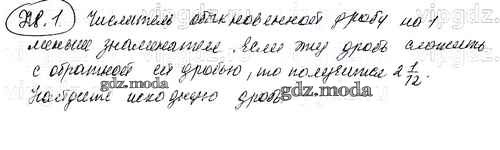 №.1. Числитель обыкновенной дроби на 1
меньше знаменателя. Если эту дробь сложить
с обратной ей дробью, то получится 2 1/12.
Найдите исходную дробь.
gdz.moda
gdz.moda